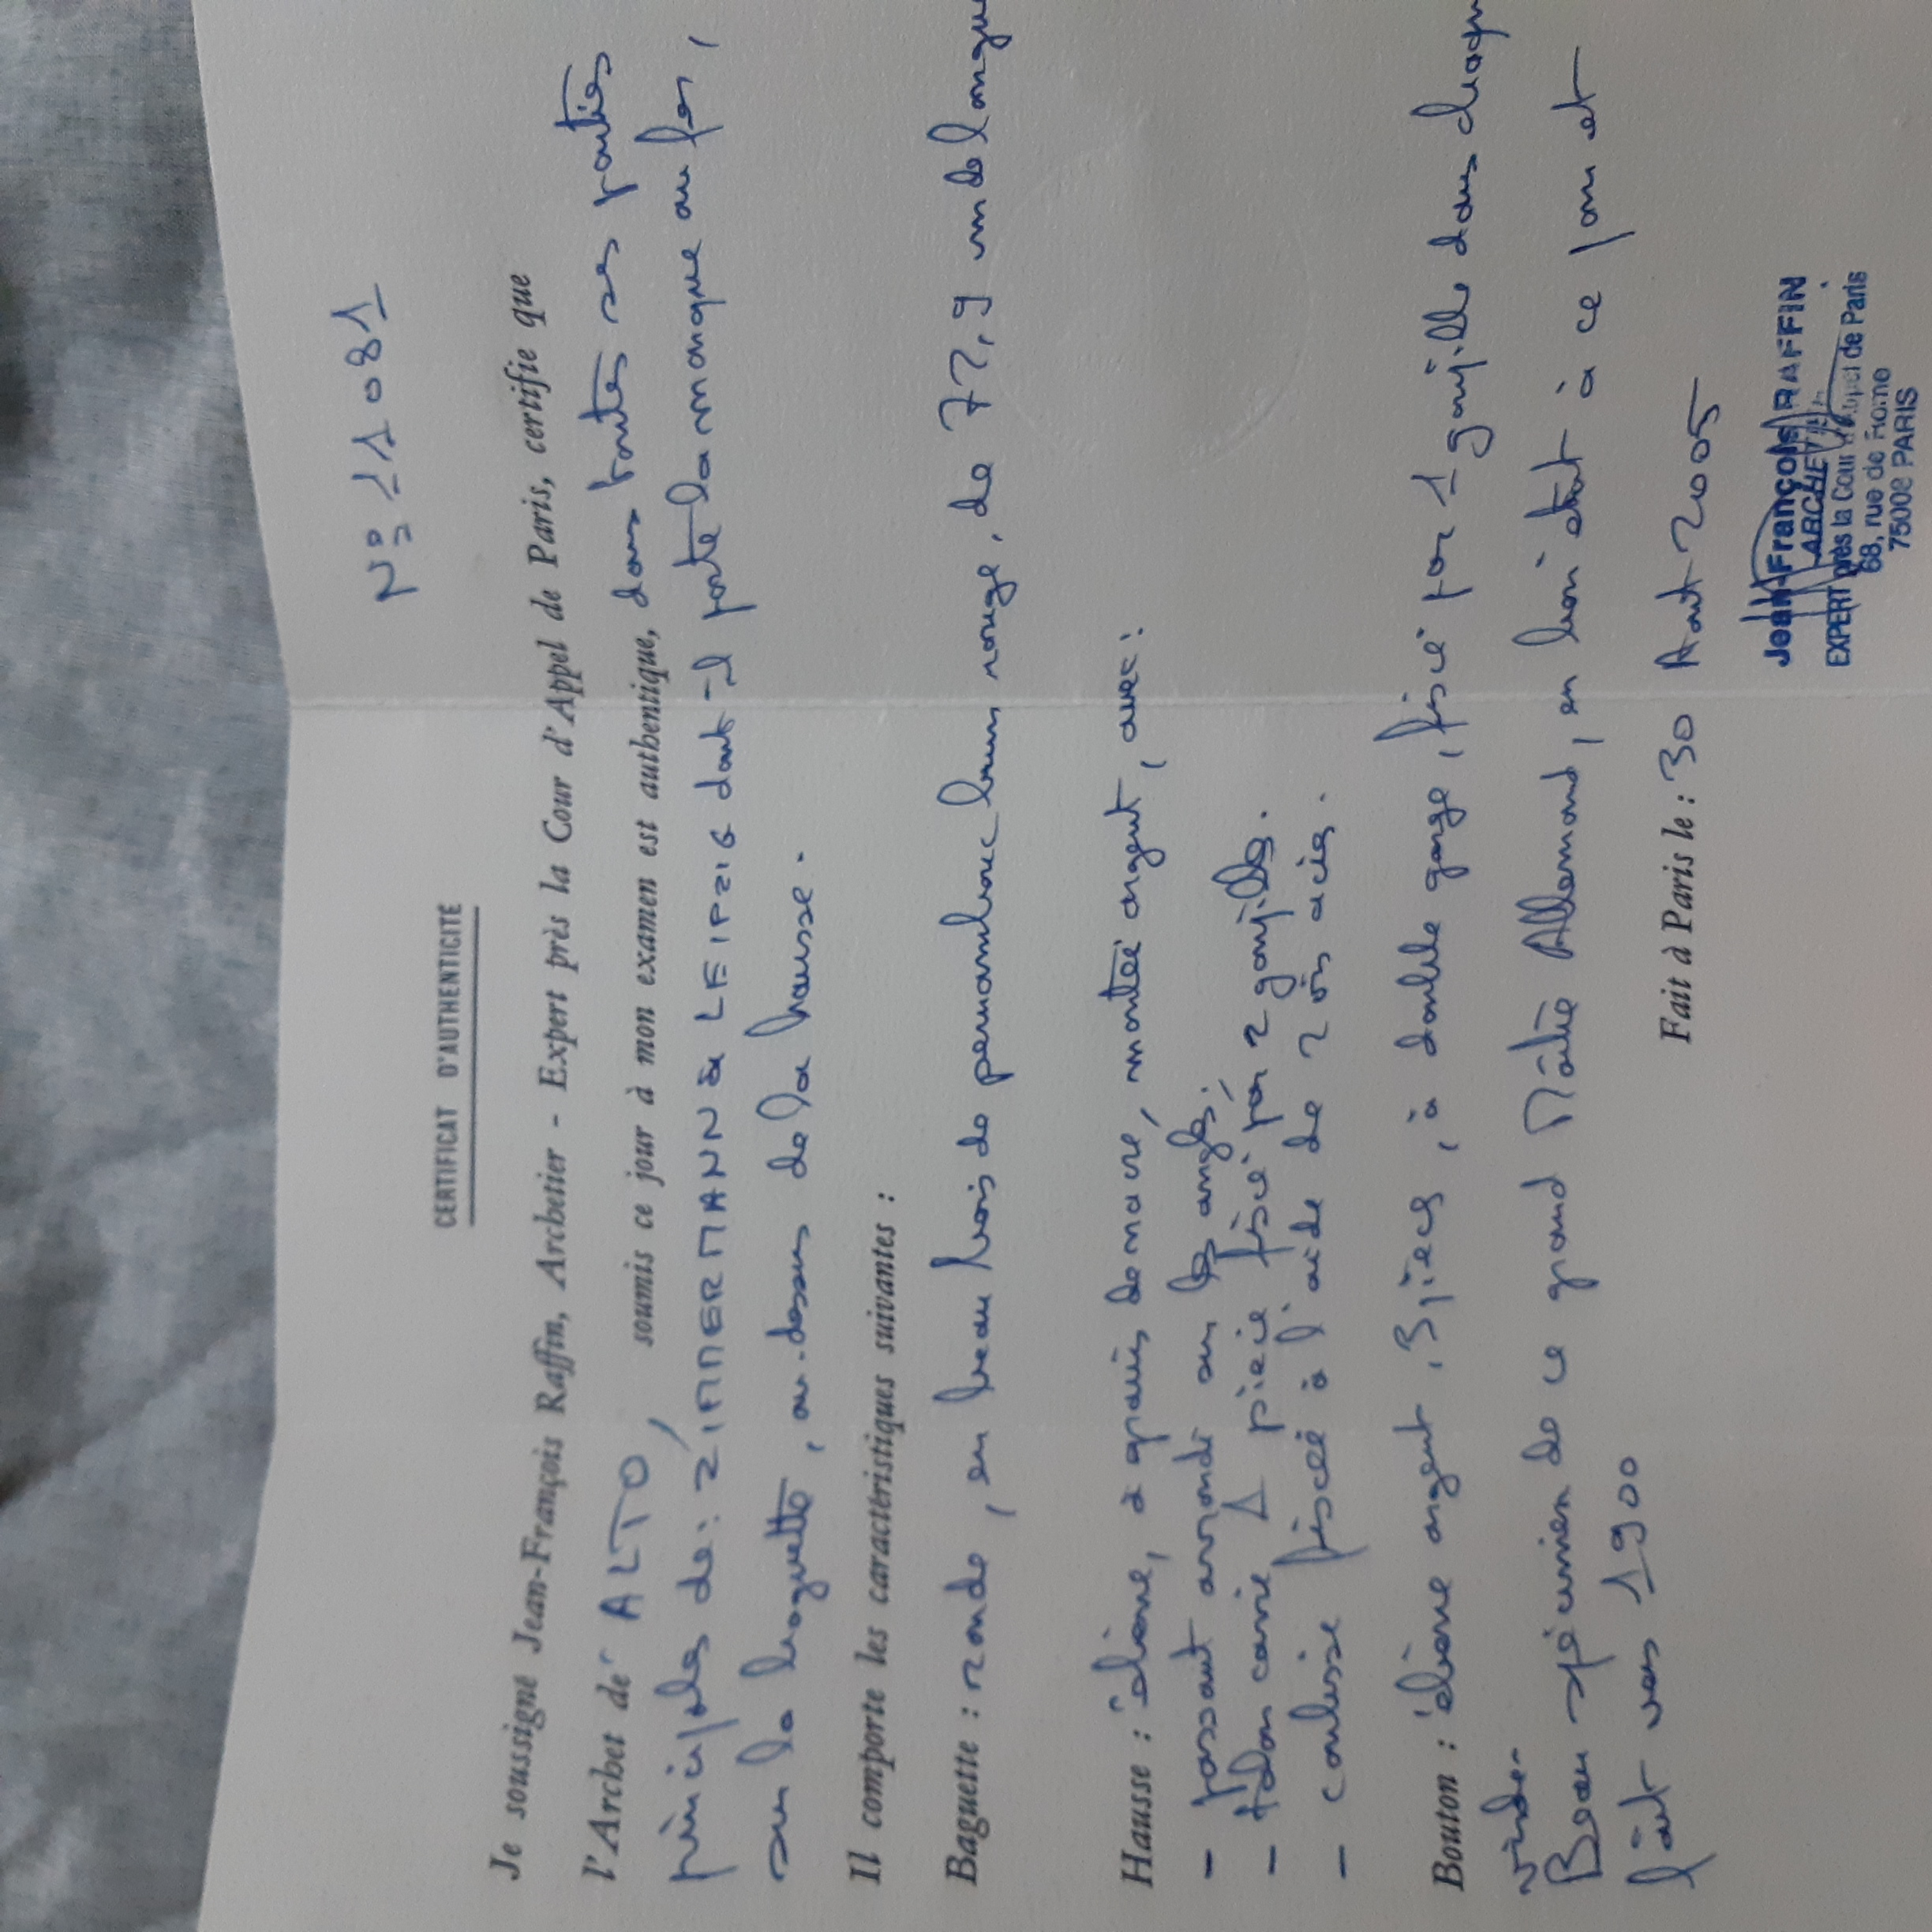 N° 11081
CERTIFICAT D'AUTHENTICITÉ
Je soussigné Jean-François Raffin, Archetier - Expert près la Cour d'Appel de Paris, certifie que
l'Archet de ALTO, soumis ce jour à mon examen est authentique, dans toutes ses parties
principales de : ZIMMERMANN à LEIPZIG dont-il porte la marque au fer,
sur la baguette, au-dessus de la hausse.
Il comporte les caractéristiques suivantes :
Baguette : ronde, en beau bois de pernambouc brun rouge, de 72,9 cm de longue
Hausse : ébène, à grains de nacre, montée argent, avec :
- passant arrondi sur les angles.
- talon carré 1 pièce fixé par 2 goupilles.
- coulisse fixée à l'aide de 2 vis acier.
Bouton : ébène argent, 3 pièces, à double gorge, fixé par 1 goupille dans chaque
Beau spécimen de ce grand Maître Allemand, en bon état à ce jour et
fait vers 1900
Fait à Paris le : 30 Août 2005
Jean-François RAFFIN
ARCHETIER
EXPERT près la Cour d'Appel de Paris
68, rue de Rome
75008 PARIS